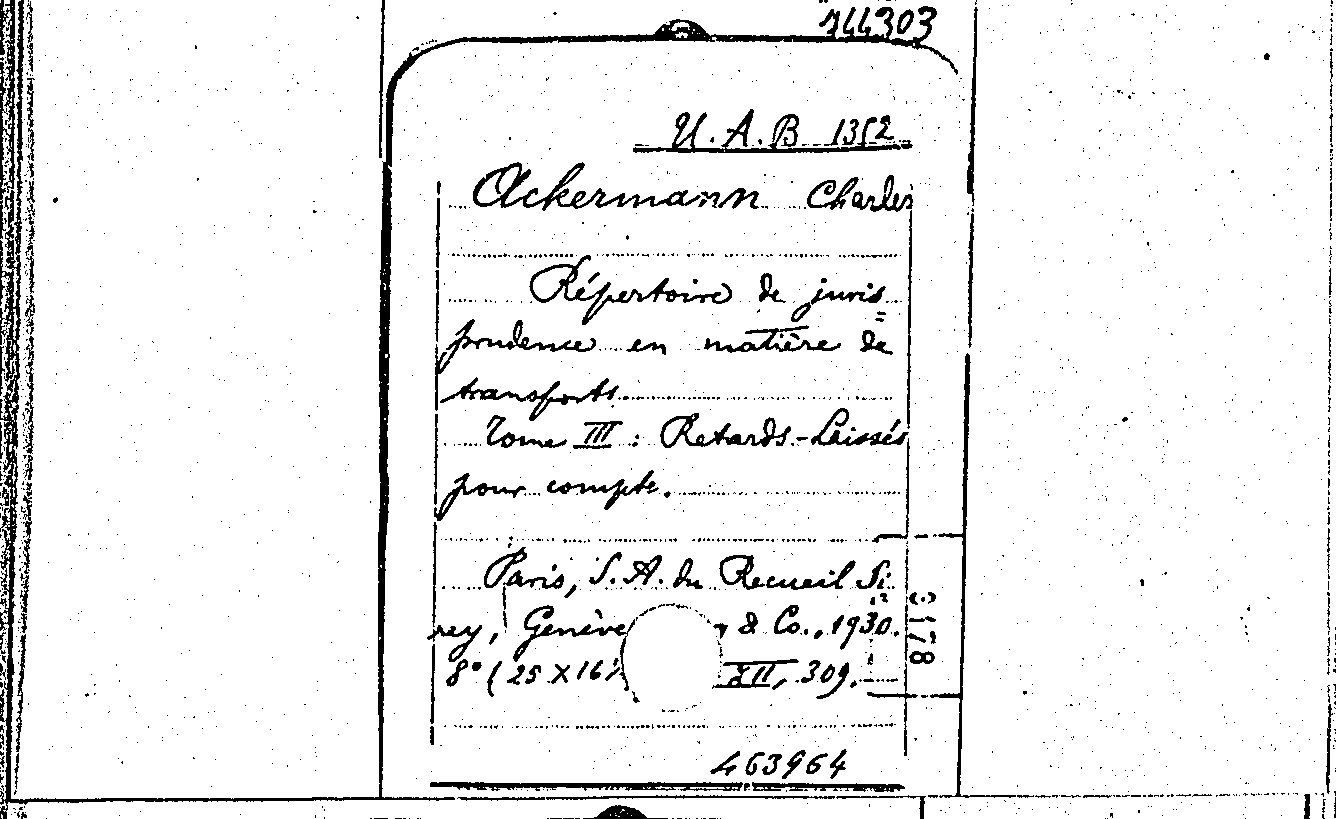 744303
U.A.B 1352
Ackermann Charles
Répertoire de juris=
prudence en matière de
transports.
Tome III : Retards-Laissés
pour compte.
Paris, S.A. du Recueil Si=
rey, Genève & Co., 1930.
8° (25 x 16) XII, 309.
3178
463964